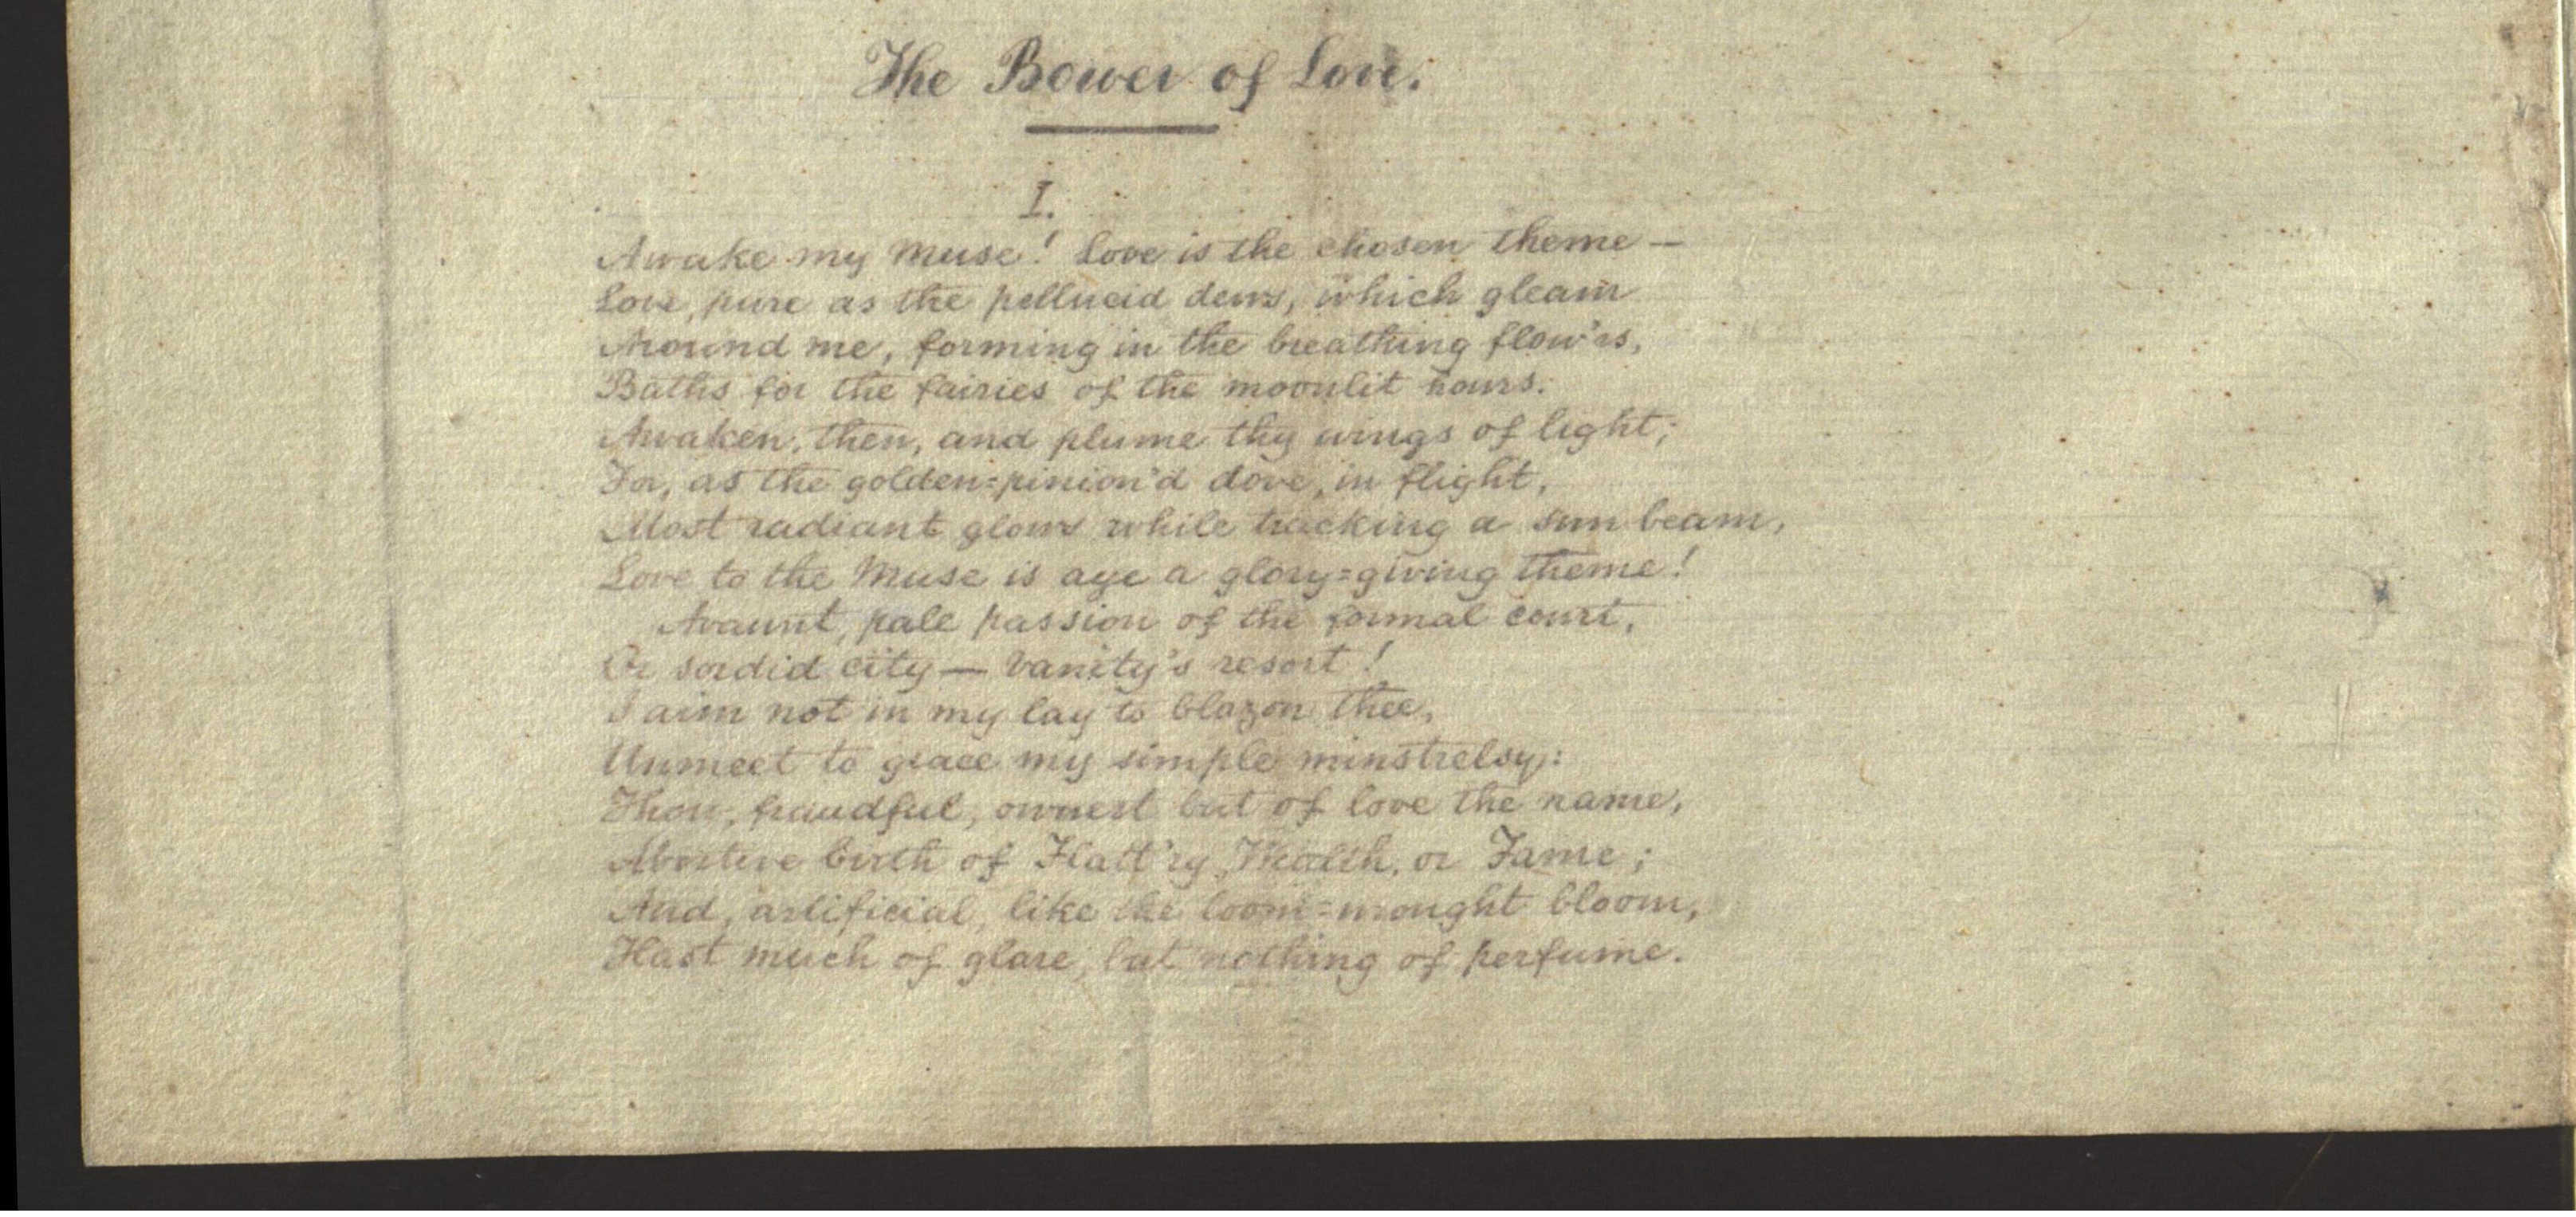 The Bower of Love.
I.
Awake my Muse! Love is the chosen theme —
Love, pure as the pellucid dews, which gleam
Around me, forming in the breathing flow'rs,
Baths for the fairies of the moonlit hours.
Awaken, then, and plume thy wings of light;
For, as the golden=pinion'd dove, in flight,
Most radiant glows while tracking a sun beam,
Love to the Muse is aye a glory=giving theme!
Avaunt, pale passion of the formal court,
Or sordid city — Vanity's resort!
I aim not in my lay to blazon thee,
Unmeet to grace my simple minstrelsy:
Thou, fraudful, ownest but of love the name,
Abortive birth of Flatt'ry, Wealth, or Fame;
And, artificial, like the loom=wrought bloom,
Hast much of glare, but nothing of perfume.